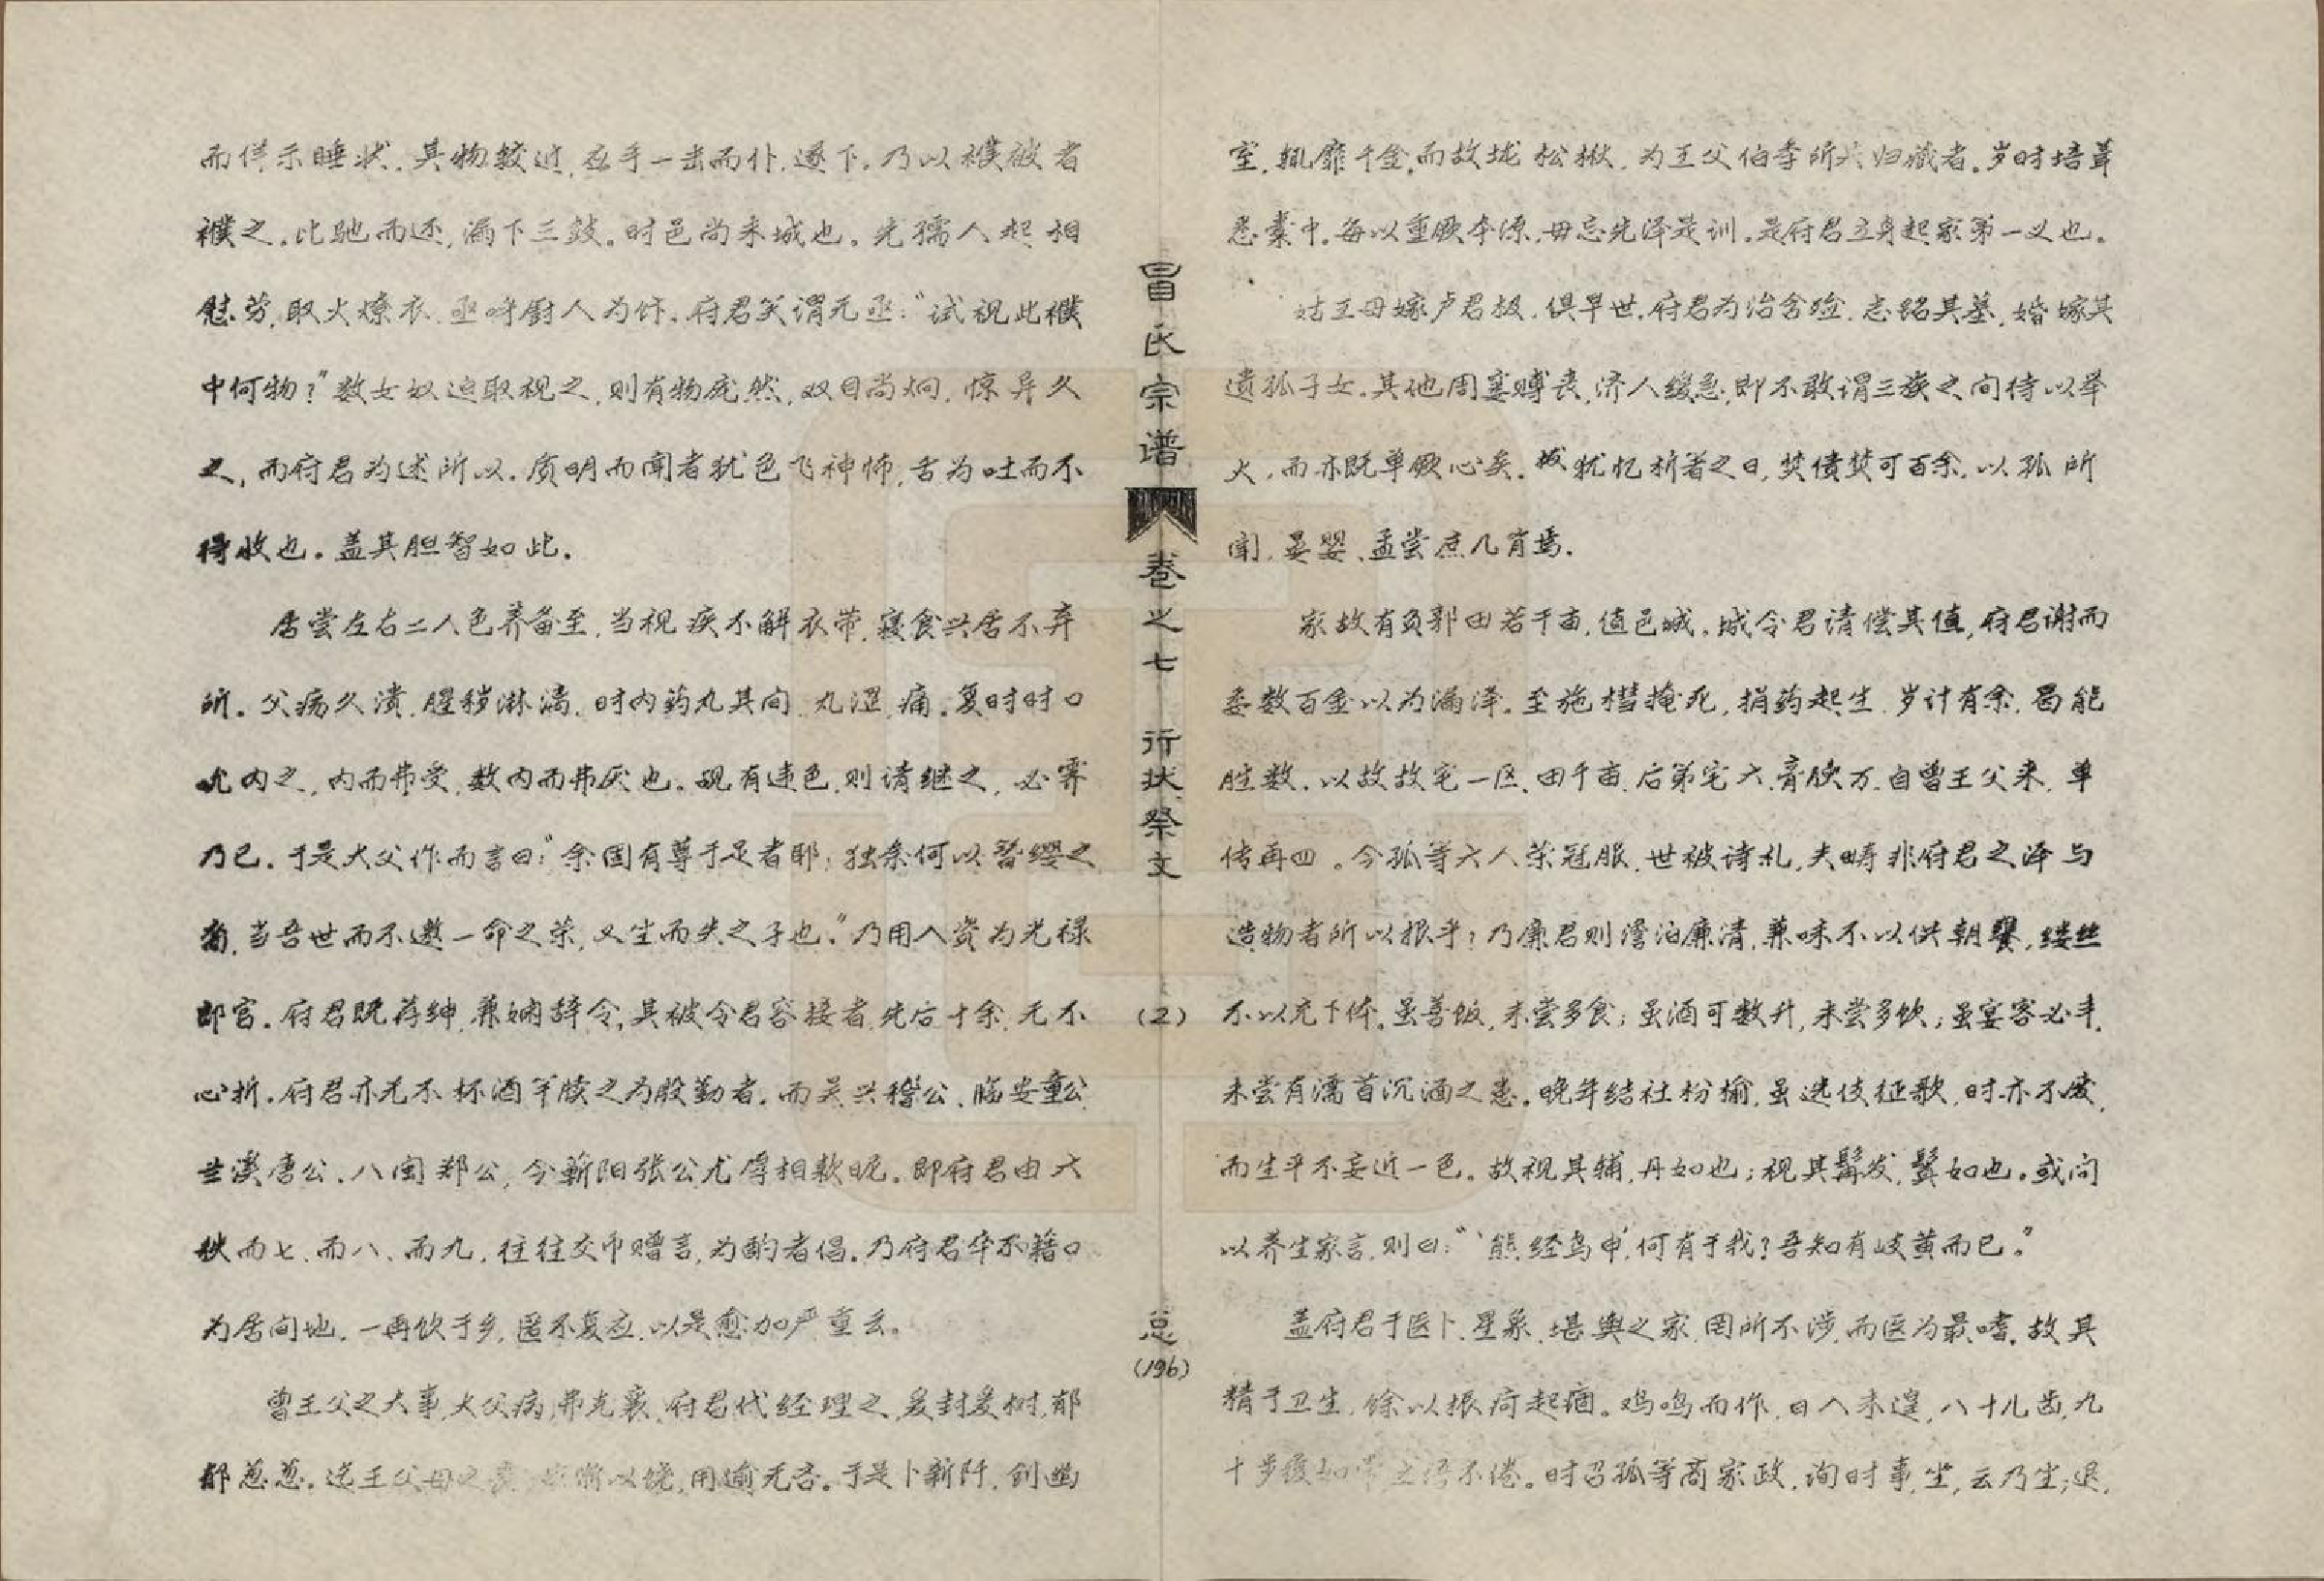 而佯示睡状．其物较近，应手一击而仆，遂下．乃以襆被者
襆之．比驰而还，漏下三鼓。时邑尚未城也。先孺人起相
慰劳，取火燎衣，亟呼厨人为饣。府君笑谓无亟：“试视此襆
中何物？”数女奴迫取视之，则有物庞然，双目尚炯，惊异久
之，而府君为述所以．质明而闻者犹色飞神怖，舌为吐而不
得收也。盖其胆智如此．
居尝左右二人色养备至，当视疾不解衣带，寝食兴居不弃
所．父疡久溃，腥秽淋漓，时内药丸其间，丸涩，痛．复时时口
吮内之，内而弗受，数内而弗厌也。砚有违色，则请继之，必霁
乃已．于是大父作而言曰：“余固有尊于足者耶；独奈何以簪缨之
裔，当吾世而不邀一命之荣，又坐而失之子也。”乃用入资为光禄
郎官．府君既荐绅，兼娴辞令，其被令君容接者，先后十余，无不
心折．府君亦无不杯酒竿牍之为殷勤者．而吴兴稽公、临安童公、
兰溪唐公、八闽郑公，今蕲阳张公尤厚相款昵。即府君由六
秩而七、而八、而九，往往交币赠言，为酌者倡。乃府君卒不籍口
为居间地，一再饮于乡，匿不复应，以是愈加严重云。
曾王父之大事，大父病弗克襄，府君代经理之，爰封爰树，郁
郁葱葱．迄王父母之丧，以饶，用逾无吝。于是卜新阡，创幽
冒氏宗谱
卷之七　行状祭文
（2）
总
（196）
室，辄靡千金，而故垅松楸，为王父伯季所共归藏者。岁时培葺
悉橐中．每以重厥本源，毋忘先泽是训．是府君立身起家第一义也。
姑王母嫁卢君极，俱早世，府君为治含殓，志铭其墓，婚嫁其
遗孤子女．其他周窭赙丧，济人缓急，即不敢谓三族之间待以举
火，而亦既单厥心矣．拔犹忆析箸之日，焚债焚可百余，以孤所
闻，晏婴、孟尝庶几肖焉．
家故有负郭田若干亩，值邑城，城令君请偿其值，府君谢而
委数百金以为漏泽。至施槥掩死，捐药起生，岁计有余，曷能
胜数．以故故宅一区、田千亩，后第宅六，膏腴万．自曾王父来，单
传再四。今孤等六人荣冠服，世被诗礼，夫畴非府君之泽与
造物者所以报乎？乃廉君则澹泊廉清，兼味不以供朝饔，缕丝
不以充下体．虽善饭，未尝多食；虽酒可数升，未尝多饮；虽宴客必丰，
未尝有濡首沉湎之患．晚年结社枌榆，虽选伎征歌，时亦不废，
而生平不妄近一色。故视其辅，丹如也；视其髯发，鬒如也。或问
以养生家言，则曰：“‘熊经鸟申’，何有于我？吾知有岐黄而已。”
盖府君于医卜、星象、堪舆之家，罔所不涉，而医为最嗜．故其
精于卫生，馀以振疴起痼．鸡鸣而作，日入未遑，八十儿齿，九
十步履如常，语不倦。时召孤等商家政，询时事，坐，云乃坐；退，